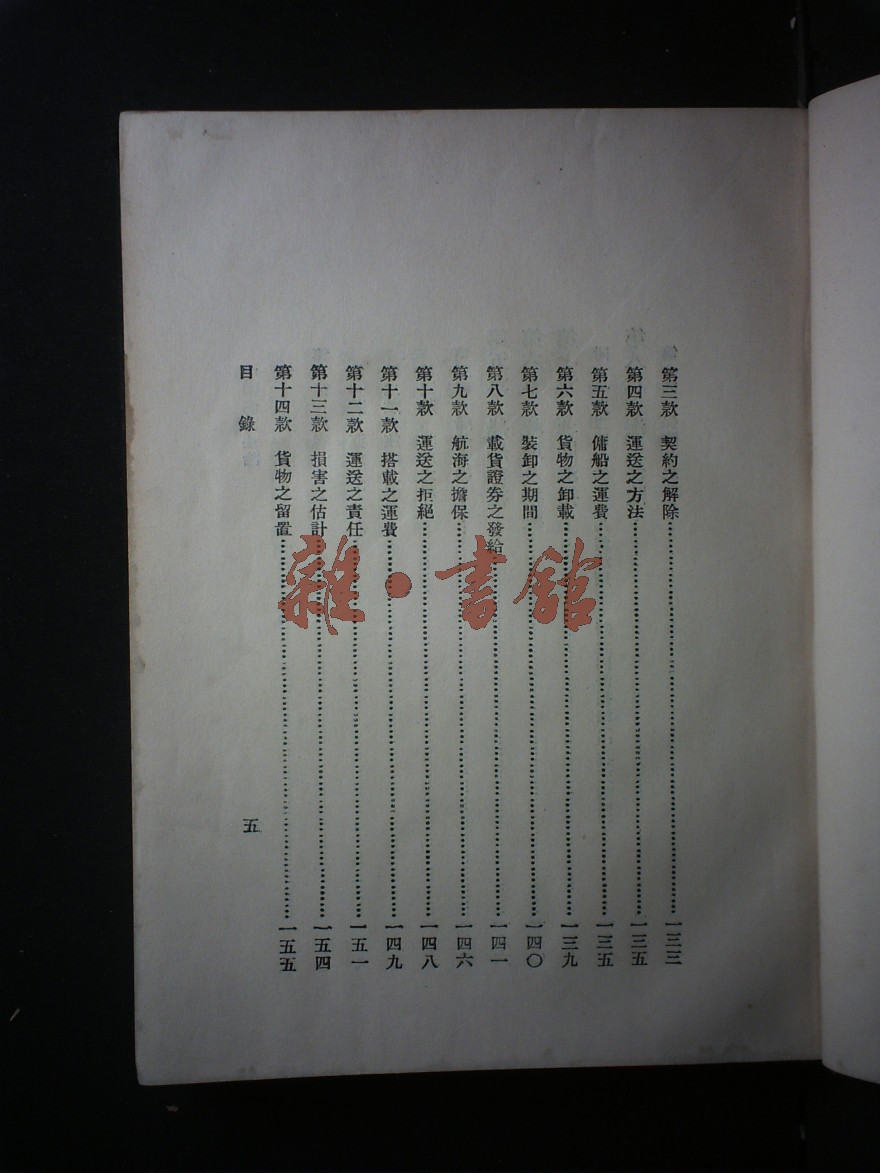 第三款　契約之解除……一三三
第四款　運送之方法……一三五
第五款　傭船之運費……一三五
第六款　貨物之卸載……一三九
第七款　裝卸之期間……一四〇
第八款　載貨證券之發給……一四一
第九款　航海之擔保……一四六
第十款　運送之拒絕……一四八
第十一款　搭載之運費……一四九
第十二款　運送之責任……一五一
第十三款　損害之估計……一五四
第十四款　貨物之留置……一五五
目錄　五
雜·書館